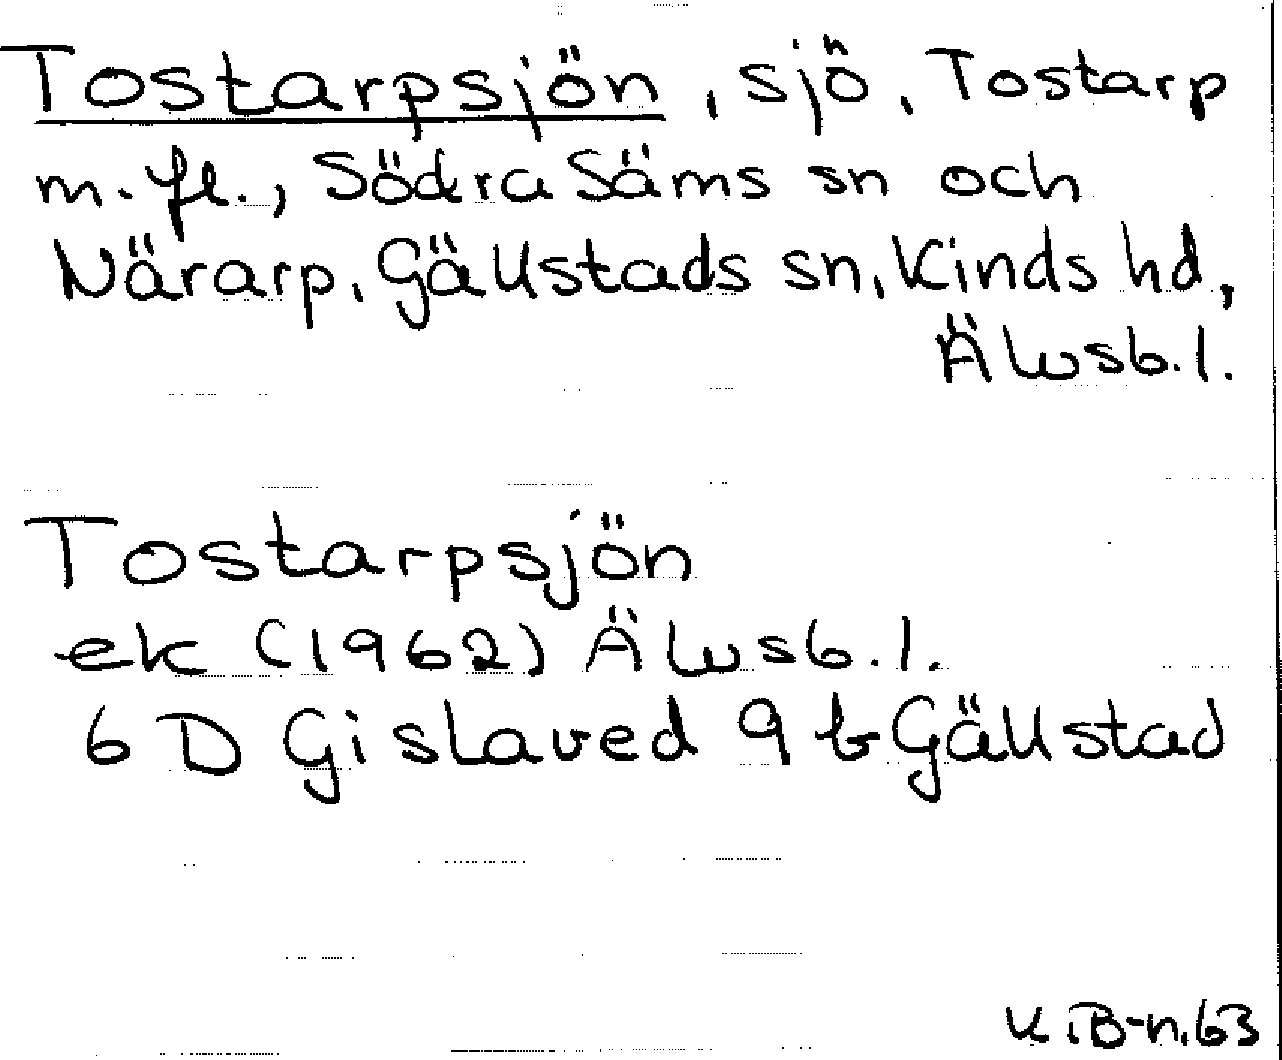 Tostarpsjön, sjö, Tostarp
m.fl., Södra Säms sn och
Närarp, Gällstads sn, Kinds hd,
Älvsb.l.
Tostarpsjön
ek (1962) Älvsb.l.
6 D Gislaved 9 b Gällstad
K.B-n.63